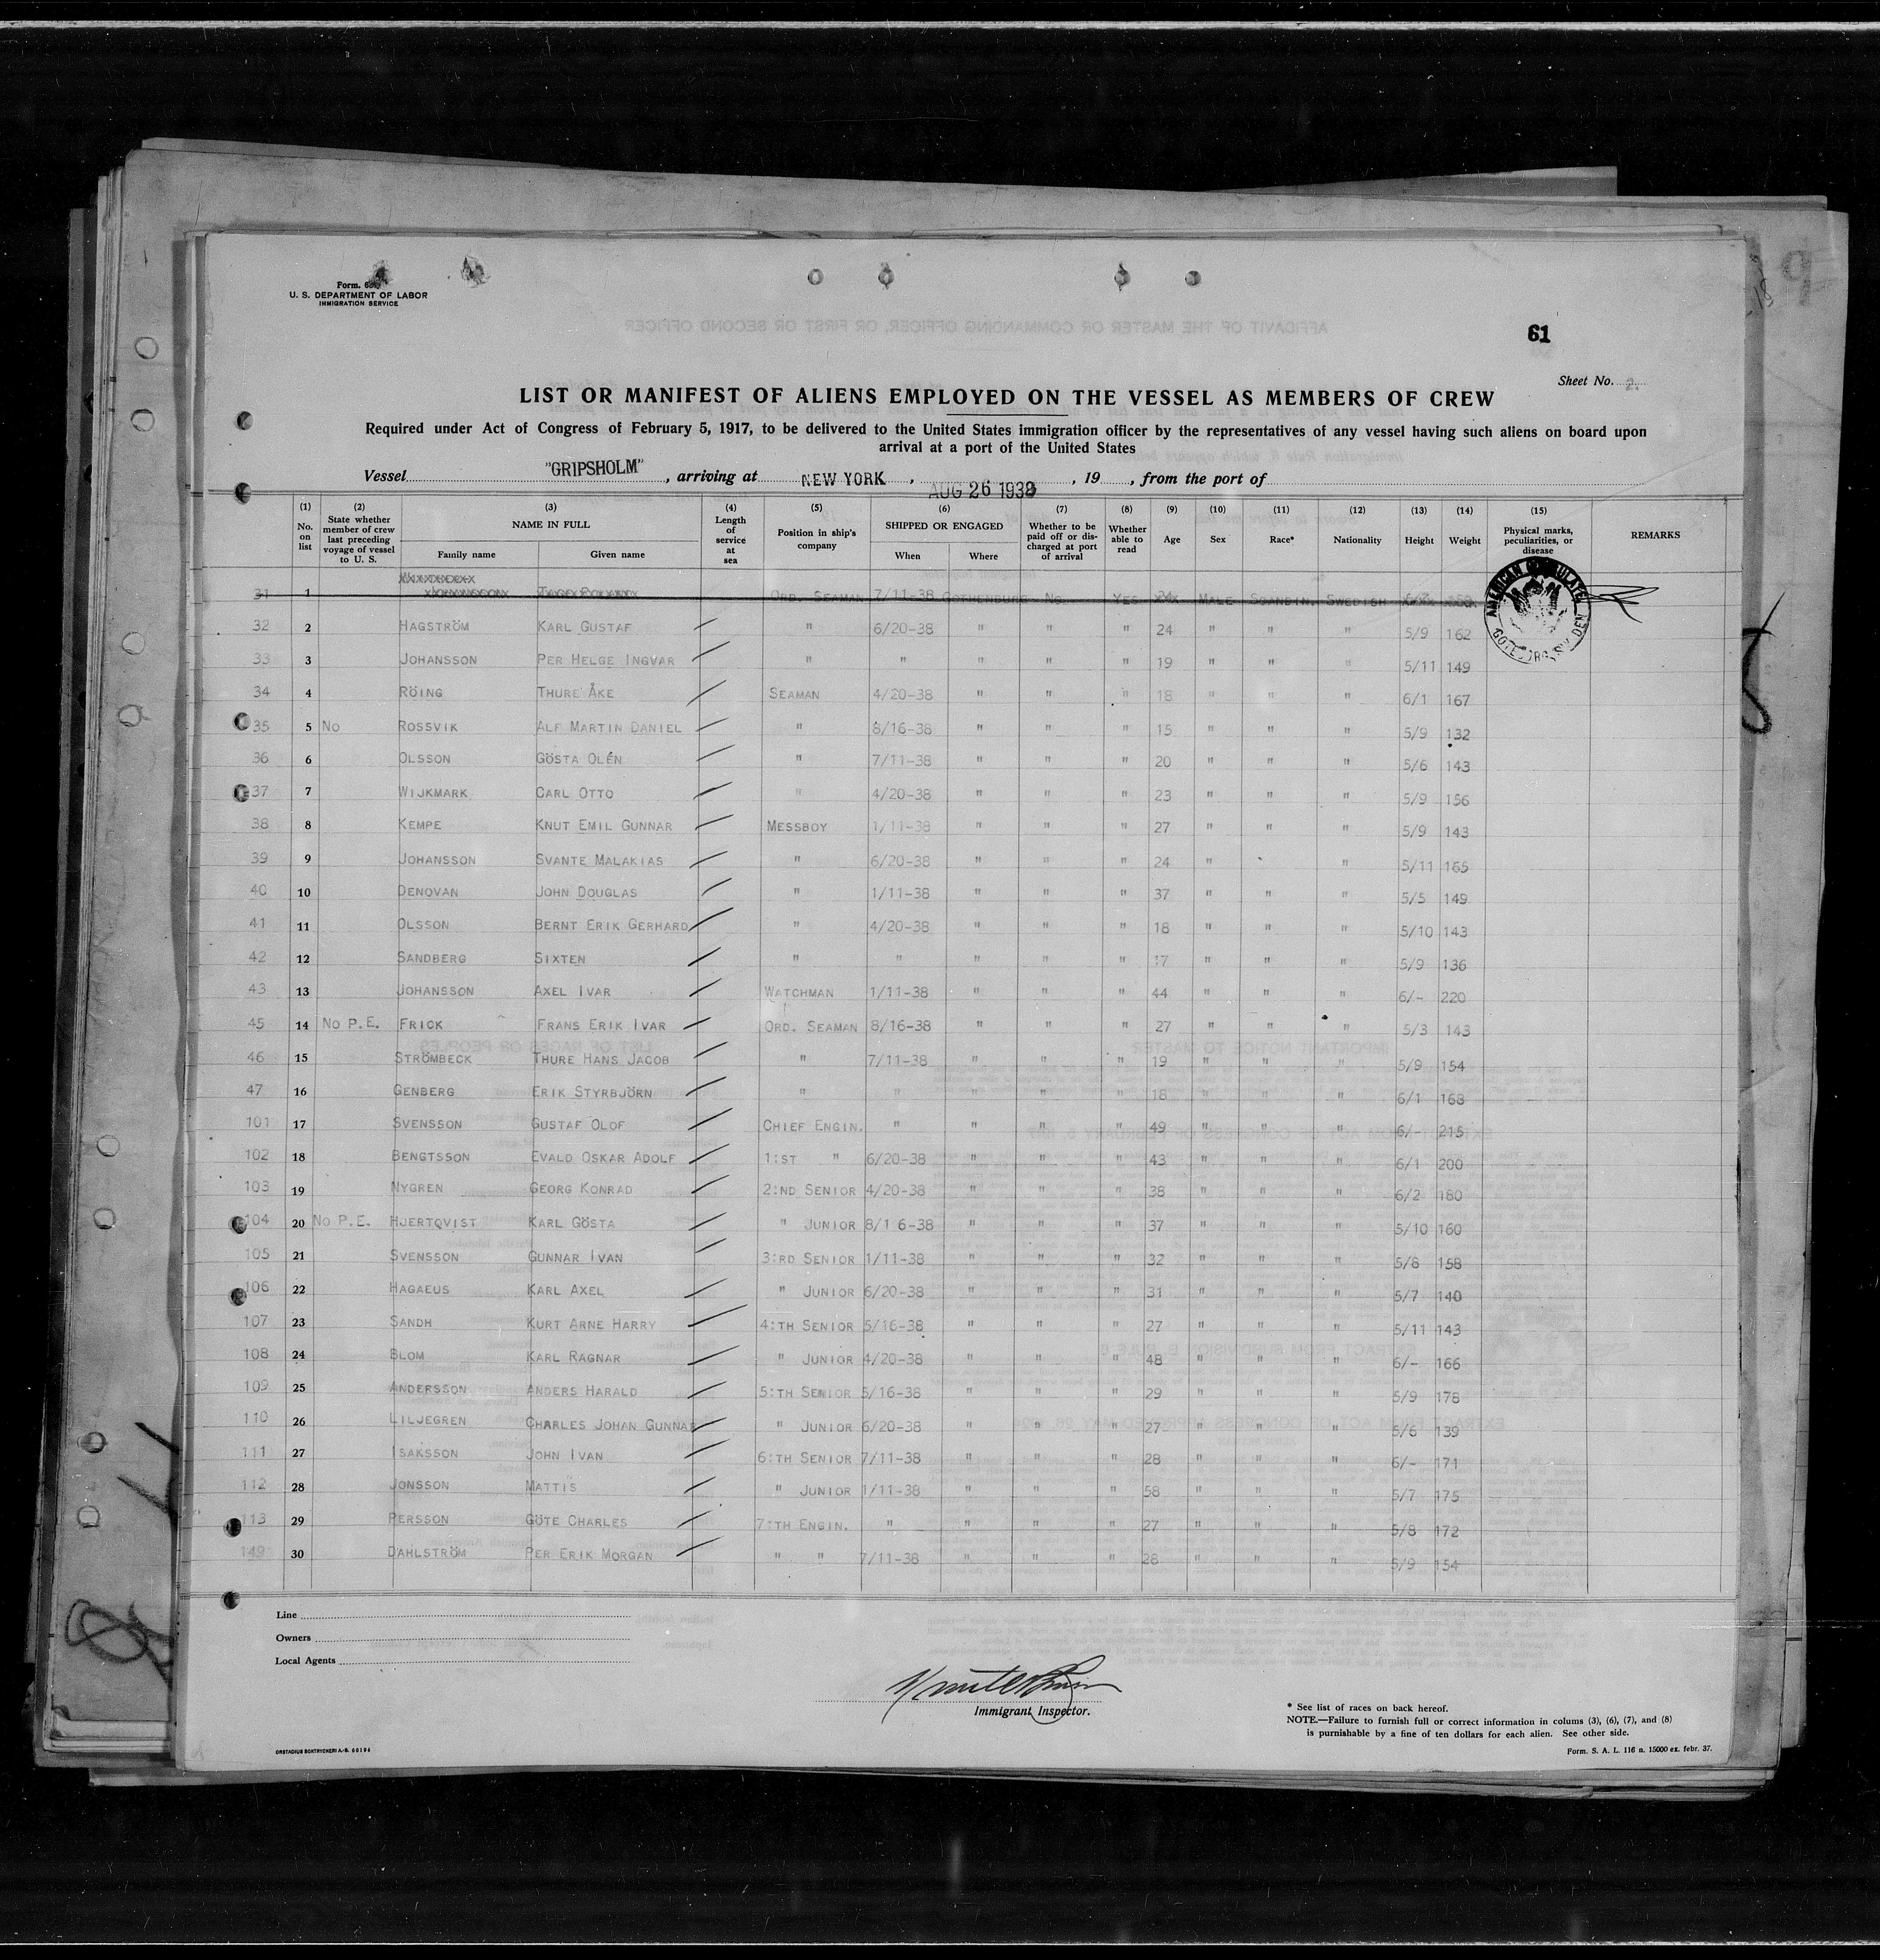 Form. 680
U. S. DEPARTMENT OF LABOR
IMMIGRATION SERVICE
61
Sheet No. 2.
LIST OR MANIFEST OF ALIENS EMPLOYED ON THE VESSEL AS MEMBERS OF CREW
Required under Act of Congress of February 5, 1917, to be delivered to the United States immigration officer by the representatives of any vessel having such aliens on board upon
arrival at a port of the United States
Vessel "GRIPSHOLM" , arriving at NEW YORK , AUG 26 1938 , 19 , from the port of
(1) No. on list (2) State whether member of crew last preceding voyage of vessel to U. S. (3) NAME IN FULL Family name Given name (4) Length of service at sea (5) Position in ship's company (6) SHIPPED OR ENGAGED When Where (7) Whether to be paid off or discharged at port of arrival (8) Whether able to read (9) Age (10) Sex (11) Race* (12) Nationality (13) Height (14) Weight (15) Physical marks, peculiarities, or disease REMARKS
31 1 ORD. SEAMAN 7/11-38 GOTHENBURG NO YES MALE SCANDIN. SWEDISH
32 2 HAGSTRÖM KARL GUSTAF " 6/20-38 " " " 24 " " " 5/9 162
33 3 JOHANSSON PER HELGE INGVAR " " " " " 19 " " " 5/11 149
34 4 RÖING THURE ÅKE SEAMAN 4/20-38 " " " 18 " " " 6/1 167
35 5 NO ROSSVIK ALF MARTIN DANIEL " 8/16-38 " " " 15 " " " 5/9 132
36 6 OLSSON GÖSTA OLÉN " 7/11-38 " " " 20 " " " 5/6 143
37 7 WIJKMARK CARL OTTO " 4/20-38 " " " 23 " " " 5/9 156
38 8 KEMPE KNUT EMIL GUNNAR MESSBOY 1/11-38 " " " 27 " " " 5/9 143
39 9 JOHANSSON SVANTE MALAKIAS " 6/20-38 " " " 24 " " " 5/11 165
40 10 DENOVAN JOHN DOUGLAS " 1/11-38 " " " 37 " " " 5/5 149
41 11 OLSSON BERNT ERIK GERHARD " 4/20-38 " " " 18 " " " 5/10 143
42 12 SANDBERG SIXTEN " " " " " 17 " " " 5/9 136
43 13 JOHANSSON AXEL IVAR WATCHMAN 1/11-38 " " " 44 " " " 6/- 220
45 14 NO P.E. FRICK FRANS ERIK IVAR ORD. SEAMAN 8/16-38 " " " 27 " " " 5/3 143
46 15 STRÖMBECK THURE HANS JACOB " 7/11-38 " " " 19 " " " 5/9 154
47 16 GENBERG ERIK STYRBJÖRN " " " " " 18 " " " 6/1 168
101 17 SVENSSON GUSTAF OLOF CHIEF ENGIN. " " " " 49 " " " 6/- 215
102 18 BENGTSSON EVALD OSKAR ADOLF 1:ST " 6/20-38 " " " 43 " " " 6/1 200
103 19 NYGREN GEORG KONRAD 2:ND SENIOR 4/20-38 " " " 38 " " " 6/2 180
104 20 NO P.E. HJERTQVIST KARL GÖSTA " JUNIOR 8/16-38 " " " 37 " " " 5/10 160
105 21 SVENSSON GUNNAR IVAN 3:RD SENIOR 1/11-38 " " " 32 " " " 5/8 158
106 22 HAGAEUS KARL AXEL " JUNIOR 6/20-38 " " " 31 " " " 5/7 140
107 23 SANDH KURT ARNE HARRY 4:TH SENIOR 5/16-38 " " " 27 " " " 5/11 143
108 24 BLOM KARL RAGNAR " JUNIOR 4/20-38 " " " 48 " " " 6/- 166
109 25 ANDERSSON ANDERS HARALD 5:TH SENIOR 5/16-38 " " " 29 " " " 5/9 178
110 26 LILJEGREN CHARLES JOHAN GUNNAR " JUNIOR 6/20-38 " " " 27 " " " 5/6 139
111 27 ISAKSSON JOHN IVAN 6:TH SENIOR 7/11-38 " " " 28 " " " 6/- 171
112 28 JONSSON MATTIS " JUNIOR 1/11-38 " " " 58 " " " 5/7 175
113 29 PERSSON GÖTE CHARLES 7:TH ENGIN. " " " " 27 " " " 5/8 172
149 30 DAHLSTRÖM PER ERIK MORGAN " " 7/11-38 " " " 28 " " " 5/9 154
AMERICAN CONSULATE
GOTEBORG, SWEDEN
Line
Owners
Local Agents
Immigrant Inspector.
* See list of races on back hereof.
NOTE.—Failure to furnish full or correct information in colums (3), (6), (7), and (8)
is punishable by a fine of ten dollars for each alien. See other side.
ORSTADIUS BOKTRYCKERI A.-B. 60194
Form. S. A. L. 116 n. 15000 ex. febr. 37.